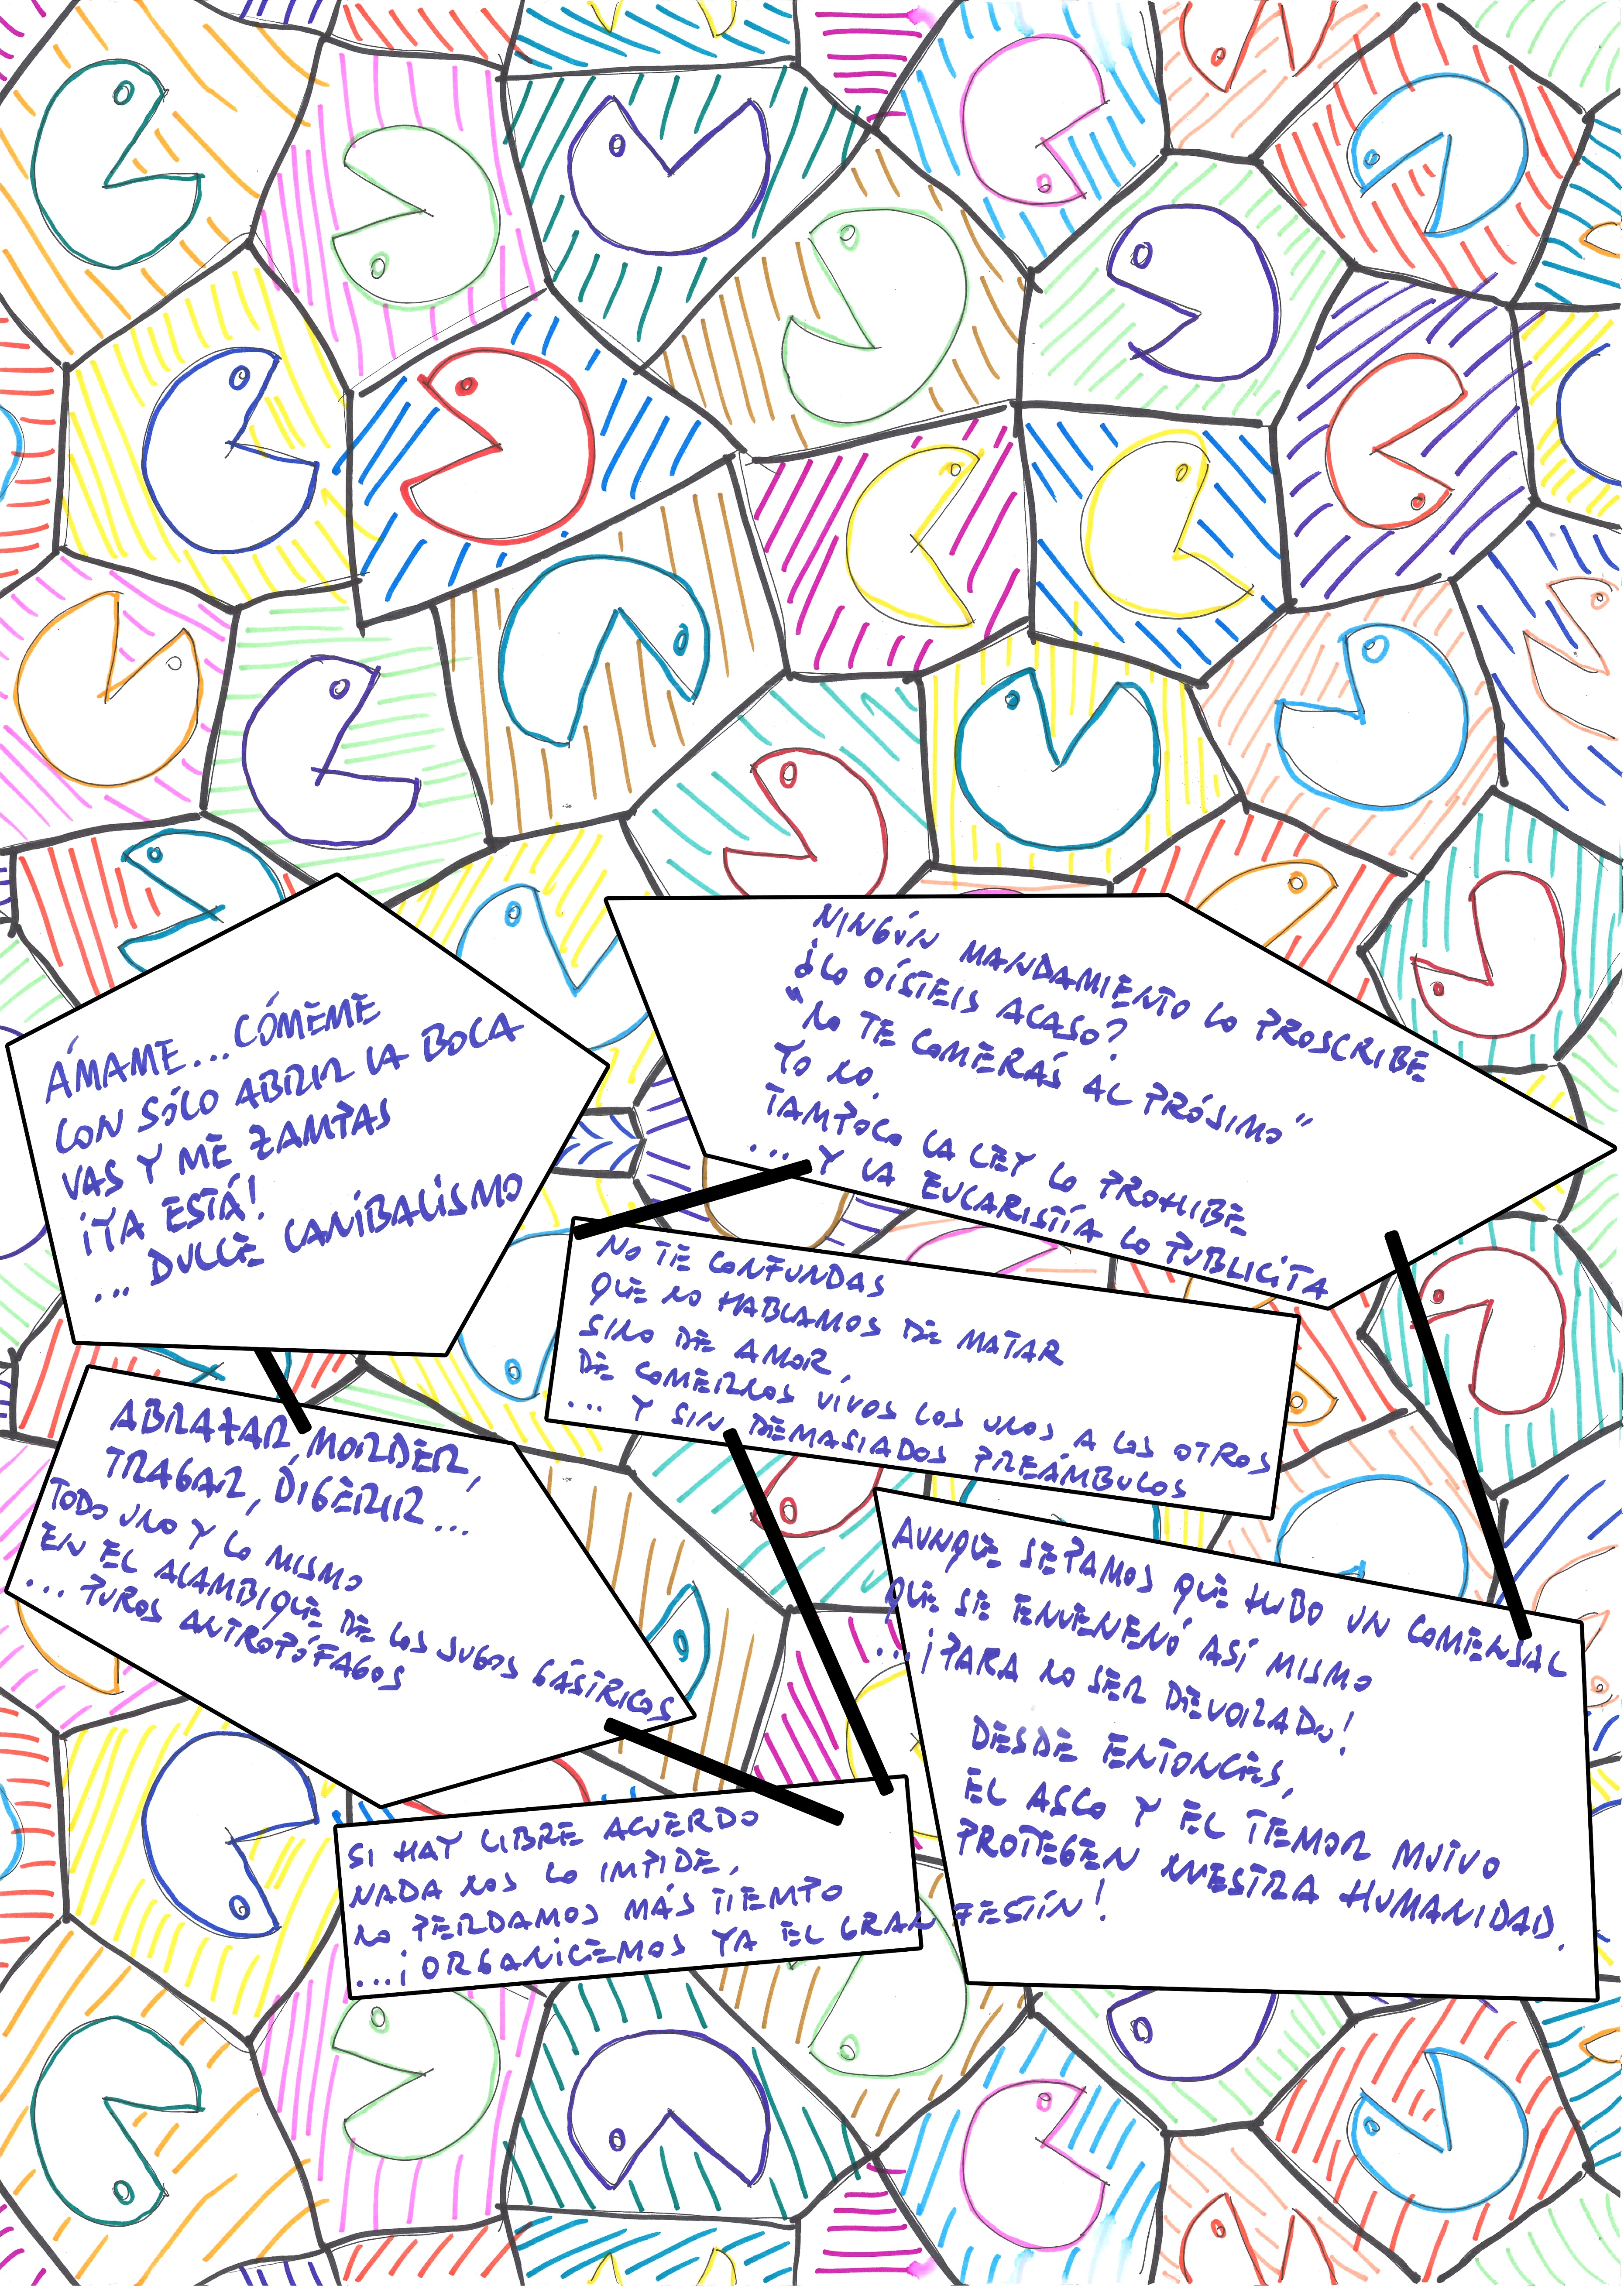 ÁMAME...CÓMEME
CON SÓLO ABRIR LA BOCA
VAS Y ME ZAMPAS
¡YA ESTÁ!
... DULCE CANIBALISMO
NINGÚN MANDAMIENTO LO PROSCRIBE
¿LO OÍSTEIS ACASO?
"NO TE COMERÁS AL PRÓSIMO"
YO NO.
TAMPOCO LA LEY LO PROHIBE
... Y LA EUCARISTÍA LO PUBLICITA
NO TE CONFUNDAS
QUE NO HABLAMOS DE MATAR
SINO DE AMOR,
DE COMERNOS VIVOS LOS UNOS A LOS OTROS
... Y SIN DEMASIADOS PREÁMBULOS
ABRAZAR, MORDER,
TRAGAR, DIGERIR...
TODO UNO Y LO MISMO
EN EL ALAMBIQUE DE LOS JUGOS GÁSTRICOS
... PUROS ANTROPÓFAGOS
AUNQUE SEPAMOS QUE HUBO UN COMENSAL
QUE SE ENVENENÓ ASÍ MISMO
...¡PARA NO SER DEVORADO!
DESDE ENTONCES,
EL ASCO Y EL TEMOR MUTUO
PROTEGEN NUESTRA HUMANIDAD.
SI HAY LIBRE ACUERDO
NADA NOS LO IMPIDE,
NO PERDAMOS MÁS TIEMPO
...¡ORGANICEMOS YA EL GRAN FESTÍN!